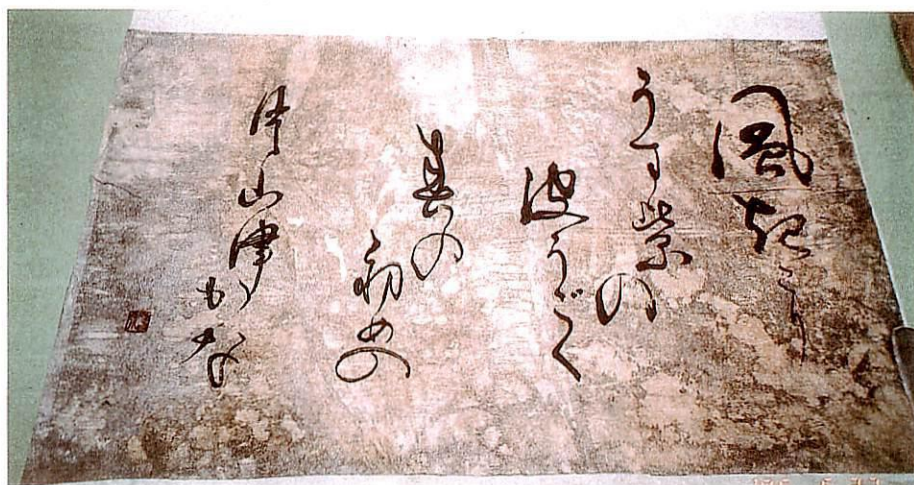 風起こり
うす紫の
波うごく
春の
初めの
片山津かな